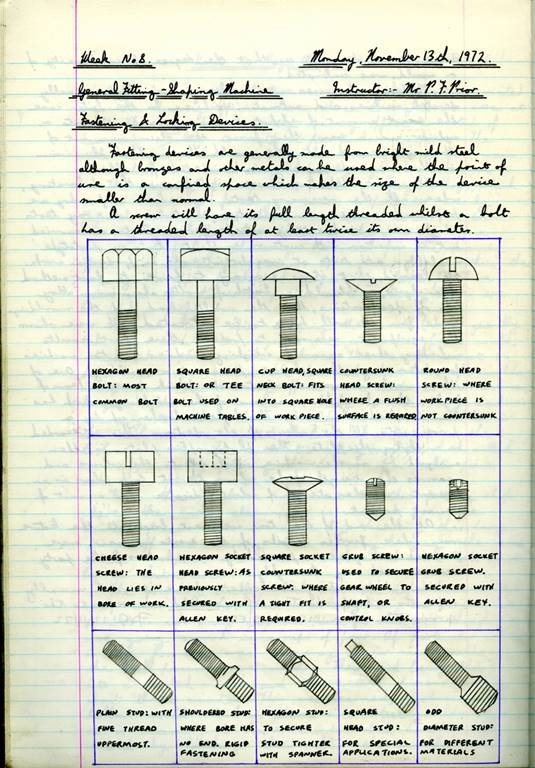 Week No 8.
Monday, November 13th, 1972.
General Fitting - Shaping Machine
Instructor:- Mr P. J. Prior.
Fastening & Locking Devices.
Fastening devices are generally made from bright mild steel
although bronzes and other metals can be used where the point of
use is a confined space which makes the size of the device
smaller than normal.
A screw will have its full length threaded whilst a bolt
has a threaded length of at least twice its own diameter.
HEXAGON HEAD
BOLT: MOST
COMMON BOLT
SQUARE HEAD
BOLT: OR TEE
BOLT USED ON
MACHINE TABLES.
CUP HEAD, SQUARE
NECK BOLT: FITS
INTO SQUARE HOLE
OF WORK PIECE.
COUNTERSUNK
HEAD SCREW:
WHERE A FLUSH
SURFACE IS REQUIRED
ROUND HEAD
SCREW: WHERE
WORK PIECE IS
NOT COUNTERSUNK
CHEESE HEAD
SCREW: THE
HEAD LIES IN
BORE OF WORK.
HEXAGON SOCKET
HEAD SCREW: AS
PREVIOUSLY
SECURED WITH
ALLEN KEY.
SQUARE SOCKET
COUNTERSUNK
SCREW. WHERE
A TIGHT FIT IS
REQUIRED.
GRUB SCREW:
USED TO SECURE
GEAR WHEEL TO
SHAFT, OR
CONTROL KNOBS.
HEXAGON SOCKET
GRUB SCREW.
SECURED WITH
ALLEN KEY.
PLAIN STUD: WITH
FINE THREAD
UPPERMOST.
SHOULDERED STUD:
WHERE BORE HAS
NO END. RIGID
FASTENING
HEXAGON STUD:
TO SECURE
STUD TIGHTER
WITH SPANNER.
SQUARE
HEAD STUD:
FOR SPECIAL
APPLICATIONS.
ODD
DIAMETER STUD:
FOR DIFFERENT
MATERIALS